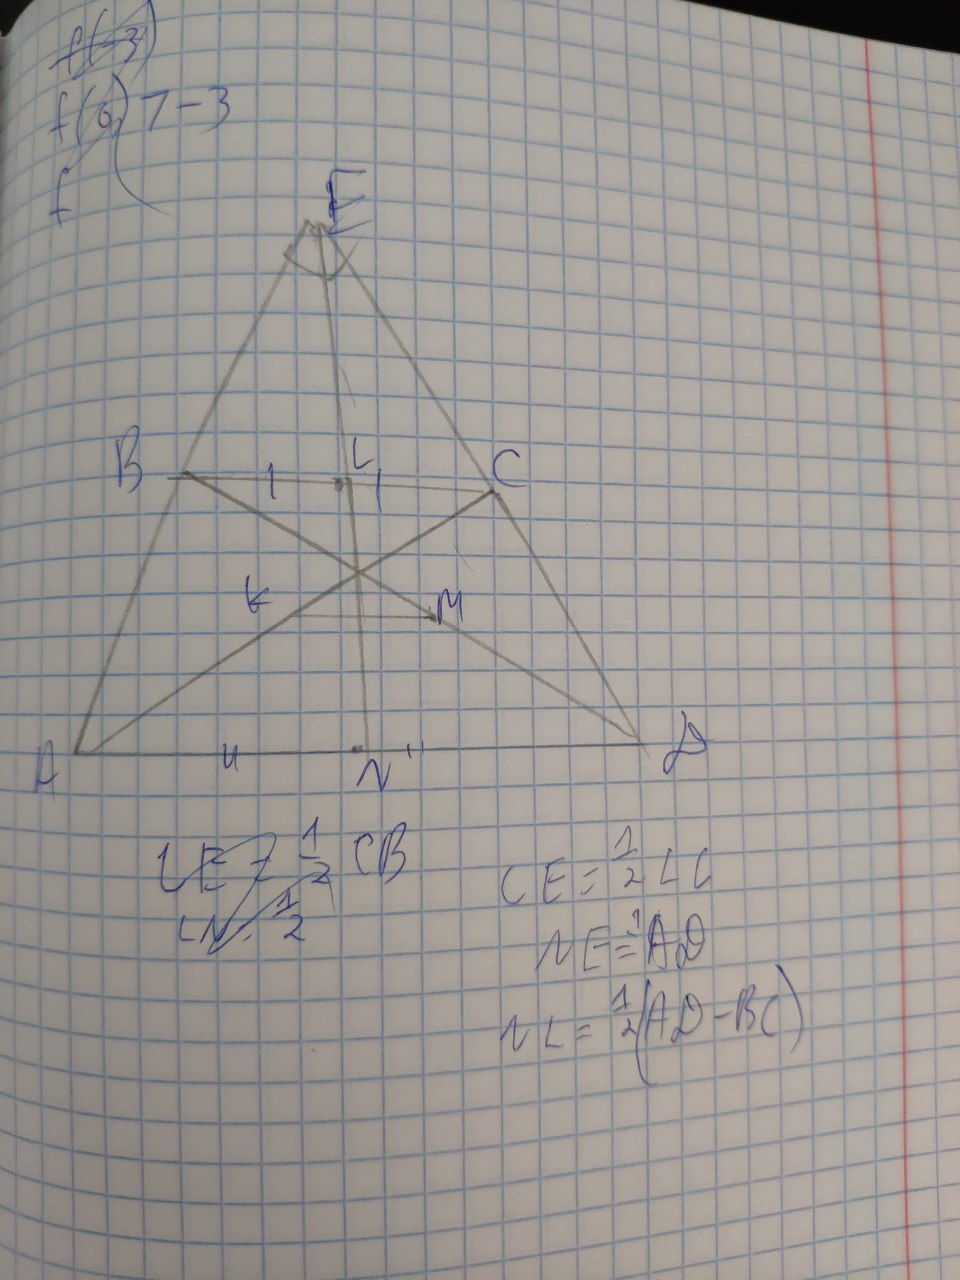 f(-3)
f(6) 7-3
f
E
B
L
C
K
M
A
N
D
LE = 1/2 CB
LN = 1/2
CE = 1/2 LC
NE = 1/2 AD
NL = 1/2 (AD - BC)